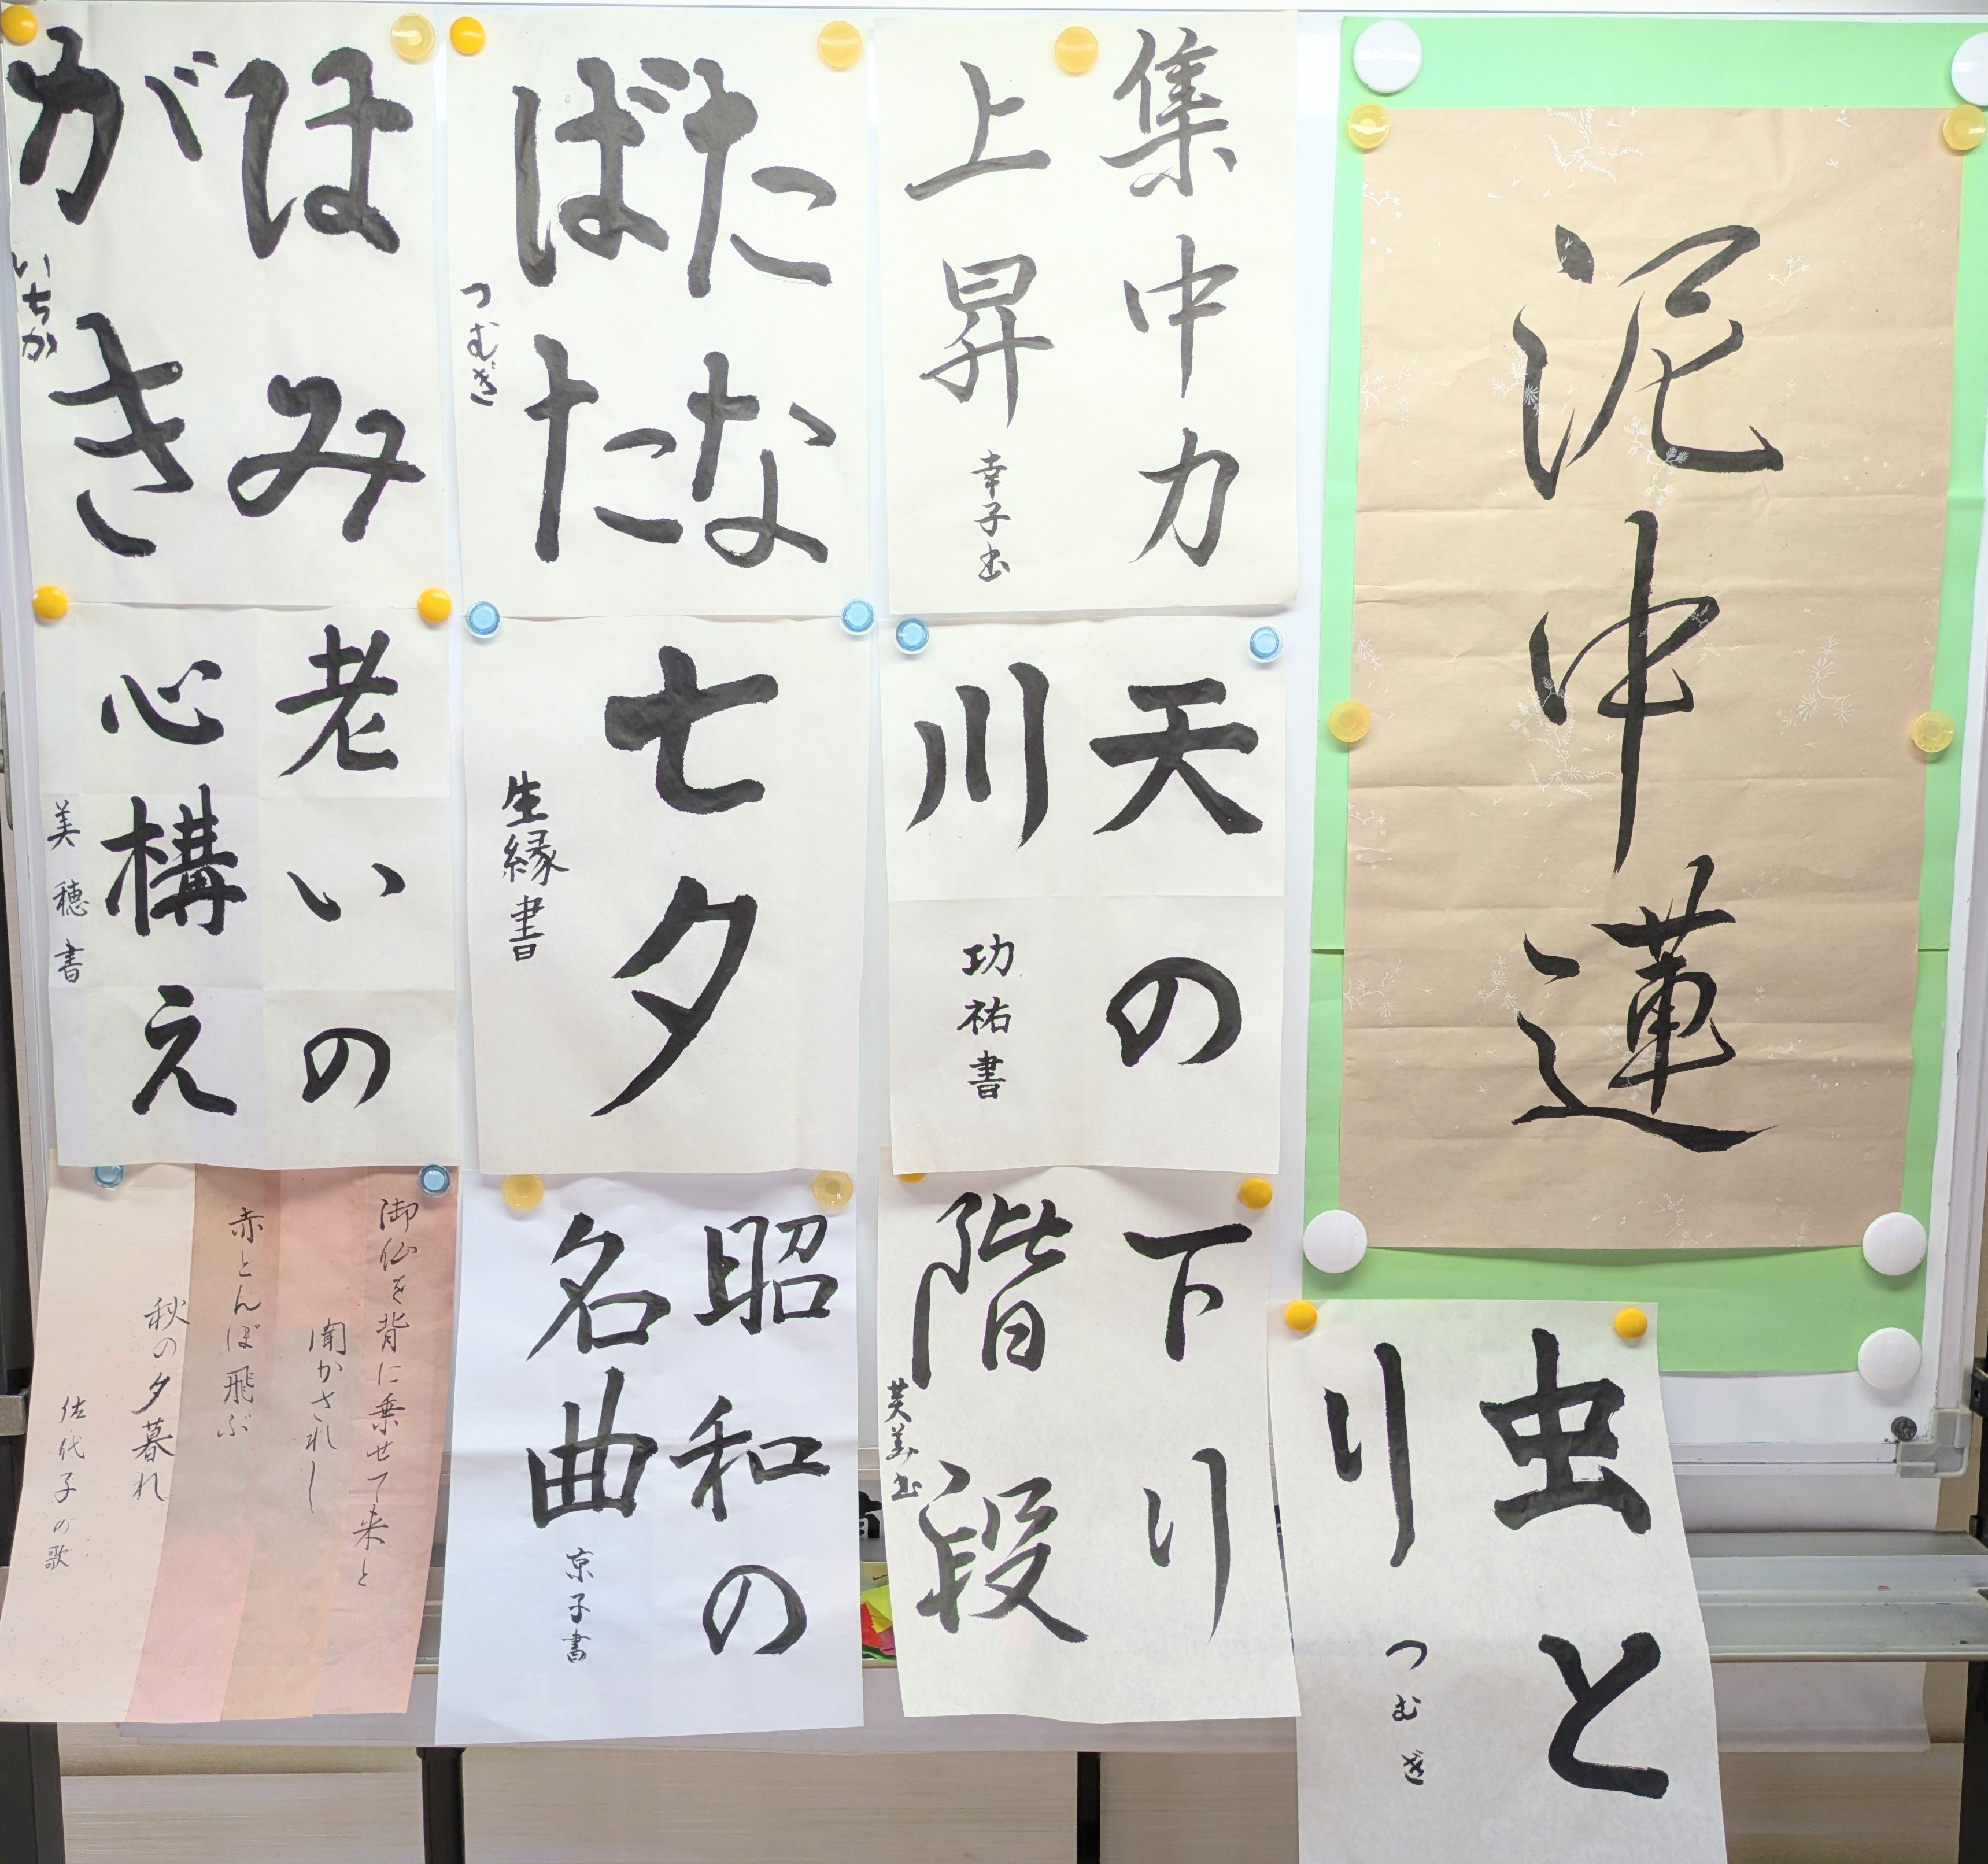 泥中蓮
集中力
上昇
幸子書
たな
ばた
つむぎ
はみ
がき
いちか
天の
川
功祐書
七夕
生縁書
老いの
心構え
美穂書
虫と
り
つむぎ
下り
階段
芙美書
昭和の
名曲
京子書
御仏を背に乗せて来と
聞かされし
赤とんぼ飛ぶ
秋の夕暮れ
佐代子の歌